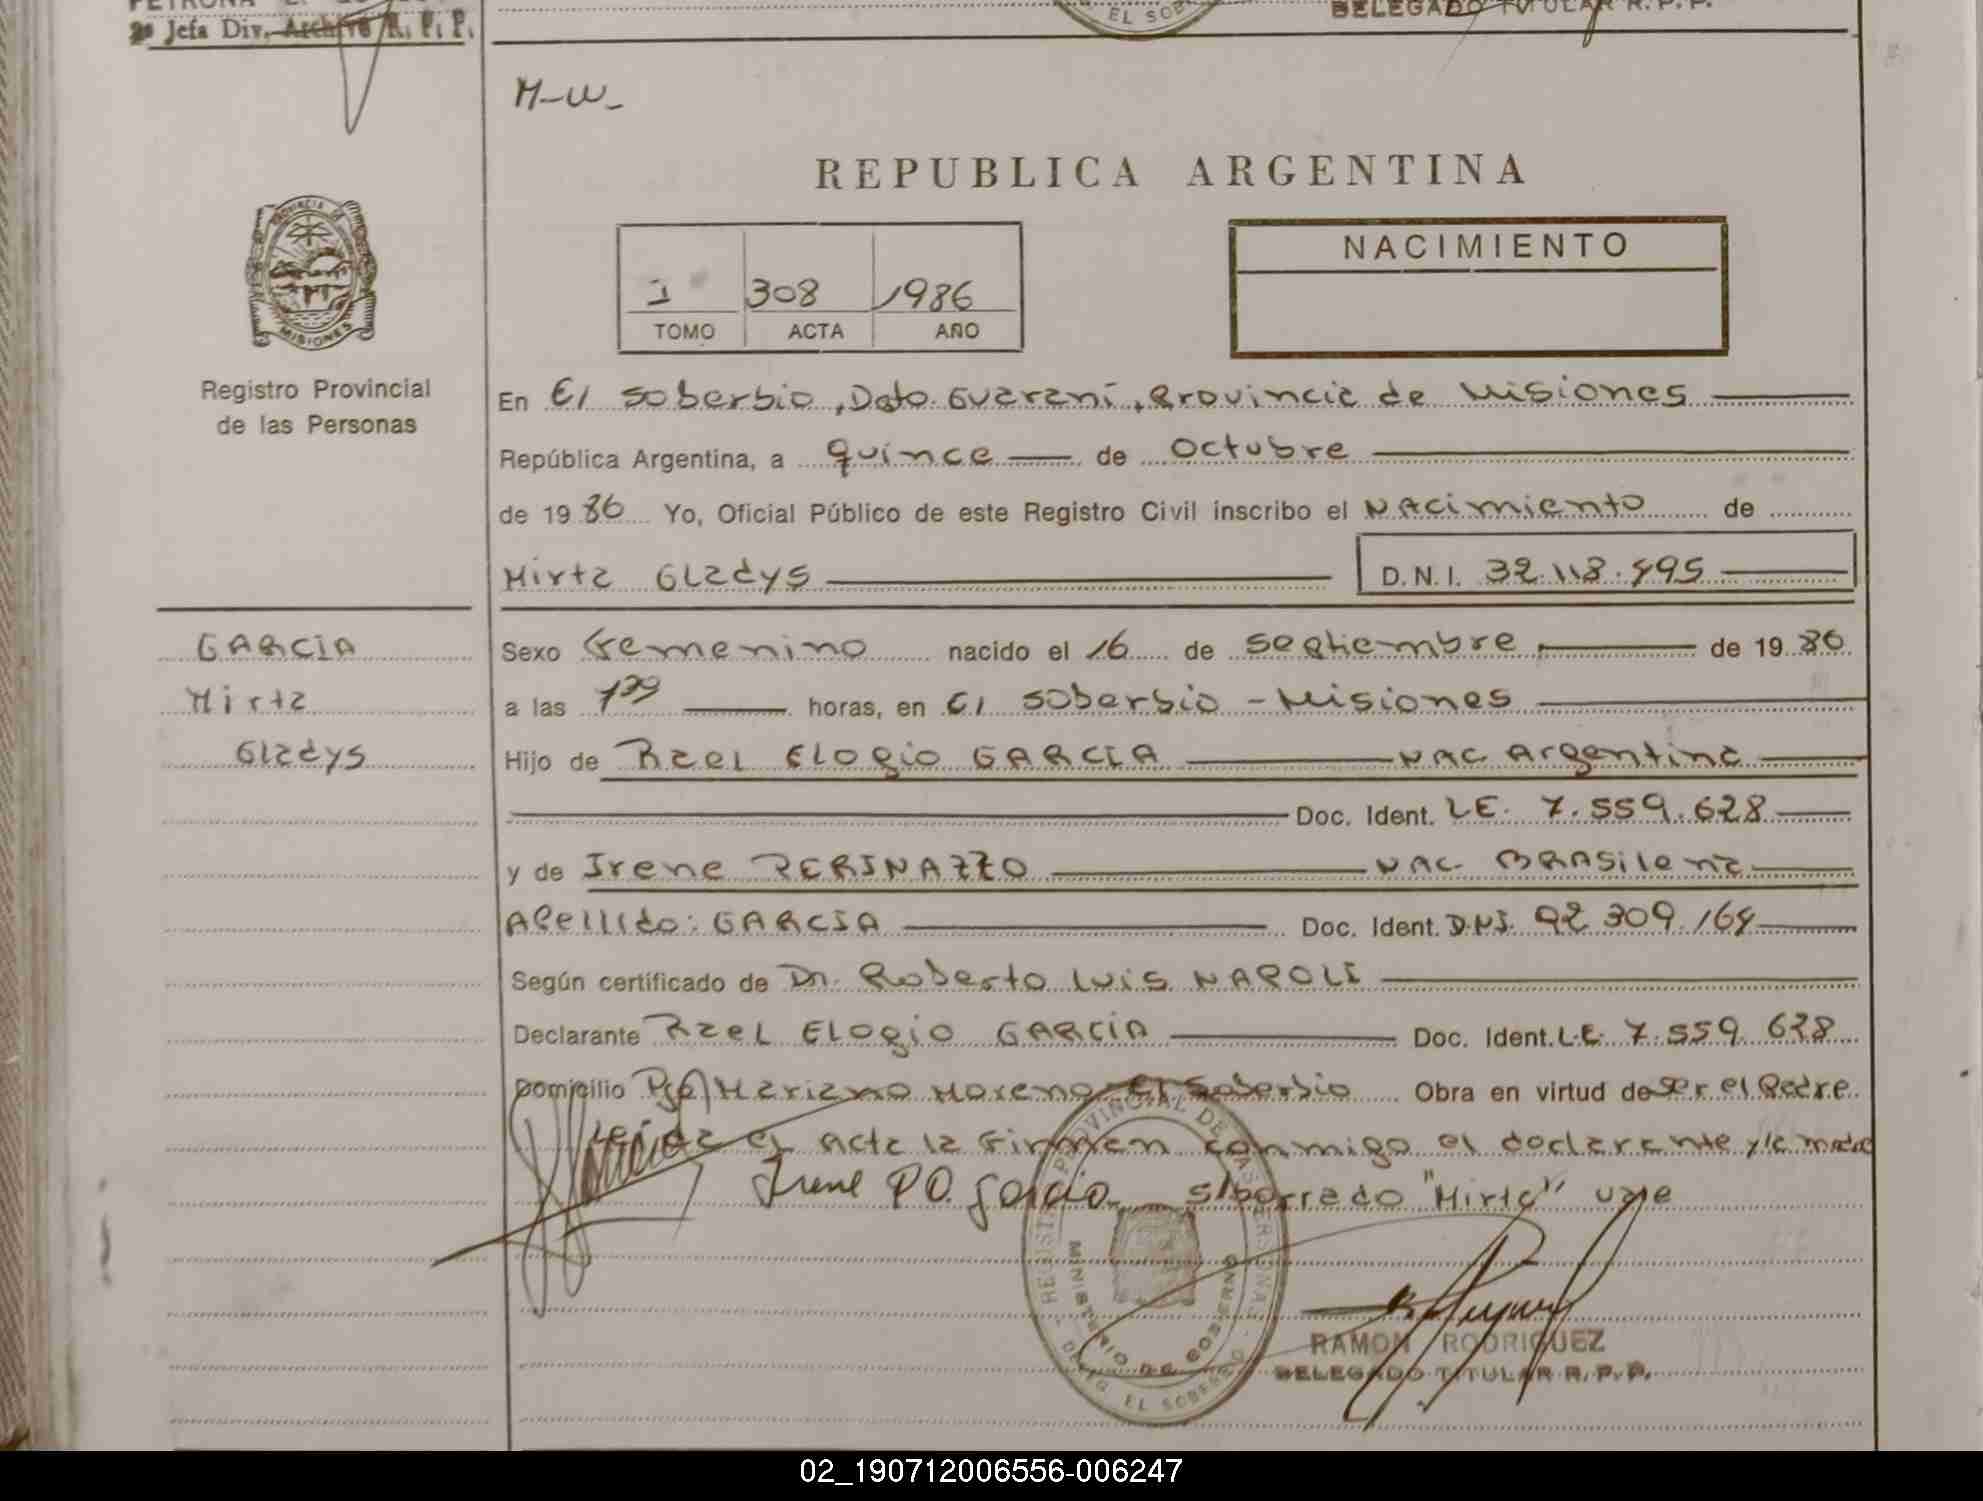 2º Jefa Div. Archivo R. P. P.
DELEGADO TITULAR R. P. P.
M-W-
REPUBLICA ARGENTINA
NACIMIENTO
I 308 1986
TOMO ACTA AÑO
PROVINCIA DE
MISIONES
Registro Provincial
de las Personas
En El Soberbio, Dpto. Guaraní, Provincia de Misiones
República Argentina, a quince de Octubre
de 1986 Yo, Oficial Público de este Registro Civil inscribo el Nacimiento de
Mirta Gladys D.N.I. 32.118.495
GARCIA
Mirta
Gladys
Sexo Femenino nacido el 16 de septiembre de 1986
a las horas, en El Soberbio - Misiones
Hijo de Rael Elogio GARCIA NAC Argentina
Doc. Ident. LE. 7.559.628
y de Irene PERINAZZO NAC- BRASileña
Apellido: GARCIA Doc. Ident. D.N.I. 92 309.164
Según certificado de Dr. Roberto Luis NAPOLI
Declarante Rael Elogio GARCIA Doc. Ident. L.E. 7.559.628
Domicilio Mariano Moreno-El Soberbio Obra en virtud de ser el Padre
Leida el acta la firman conmigo el declarante y la madre
Irene P.D. Garcia s/borrado "Mirta" vale
REGISTRO PROVINCIAL DE LAS PERSONAS
MINISTERIO DE GOBIERNO
DELEG. EL SOBERBIO
RAMON RODRIGUEZ
DELEGADO TITULAR R. P. P.
02_190712006556-006247